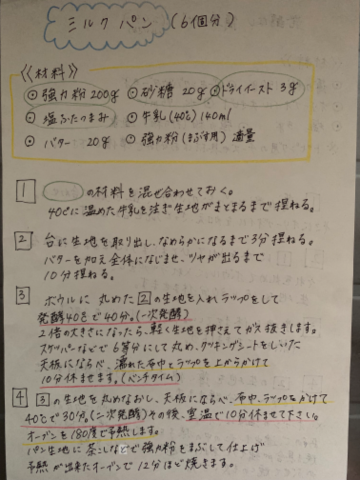 ミルクパン (6個分)
《材料》
⊙強力粉 200g ⊙砂糖 20g ⊙ドライイースト 3g
⊙塩ふたつまみ ⊙牛乳(40℃)140ml
⊙バター 20g ⊙強力粉(まぶす用) 適量
1 の材料を混ぜ合わせておく。
40℃に温めた牛乳を注ぎ生地がまとまるまで捏ねる。
2 台に生地を取り出し、なめらかになるまで3分捏ねる。
バターを加え全体になじませ、ツヤが出るまで
10分捏ねる。
3 ボウルに丸めた2の生地を入れラップをして
発酵40℃で40分。(一次発酵)
2倍の大きさになったら、軽く生地を押さえてガス抜きします。
スケッパーなどで6等分にして丸め、クッキングシートをしいた
天板にならべ、濡れた布巾とラップを上からかけて
10分休ませます。(ベンチタイム)
4 3の生地を丸めなおし、天板にならべ、布巾、ラップをかけて
40℃で30分。(二次発酵)その後、室温で10分休ませて下さい。
オーブンを180度で予熱します。
パン生地に茶こしなどで強力粉をまぶして仕上げ
予熱が出来たオーブンで12分ほど焼きます。